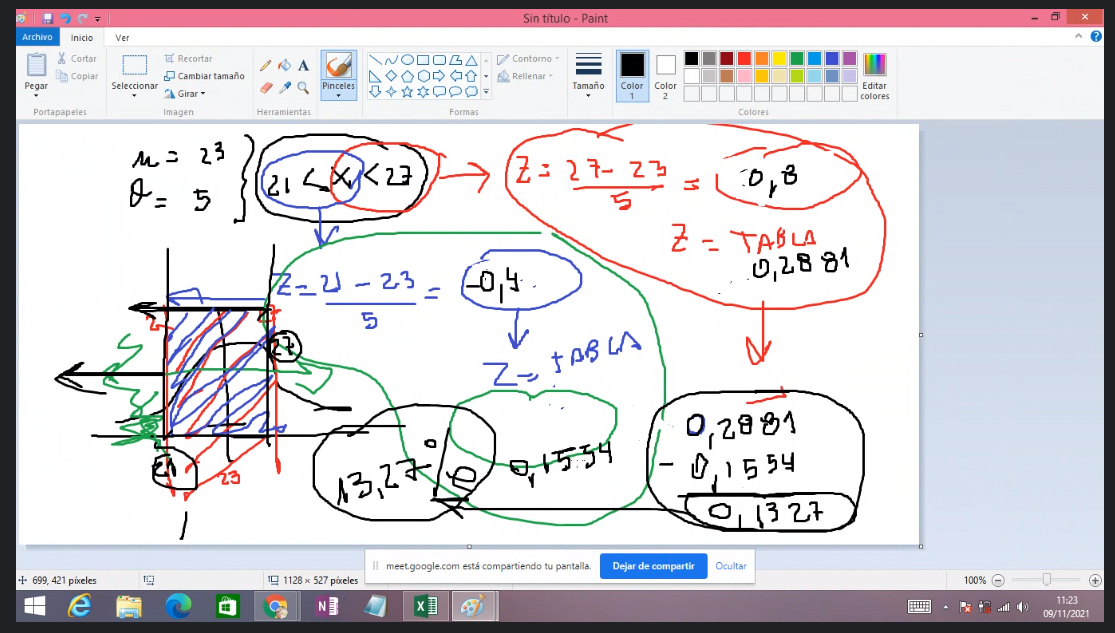 Sin título - Paint
Archivo Inicio Ver
Pegar
Cortar
Copiar
Portapapeles
Seleccionar
Recortar
Cambiar tamaño
Girar
Imagen
A
Herramientas
Pinceles
Contorno
Rellenar
Formas
Tamaño
Color 1
Color 2
Editar colores
Colores
μ = 23
σ = 5
21 < x < 27
Z = 27 - 23 = 0,8
5
Z = TABLA
0,2881
Z = 21 - 23 = -0,4
5
Z = TABLA
27
21
23
13,27 %
0,1554
0,2881
- 0,1554
0,1327
meet.google.com está compartiendo tu pantalla.
Dejar de compartir
Ocultar
699, 421 píxeles
1128 × 527 píxeles
100%
11:23
09/11/2021